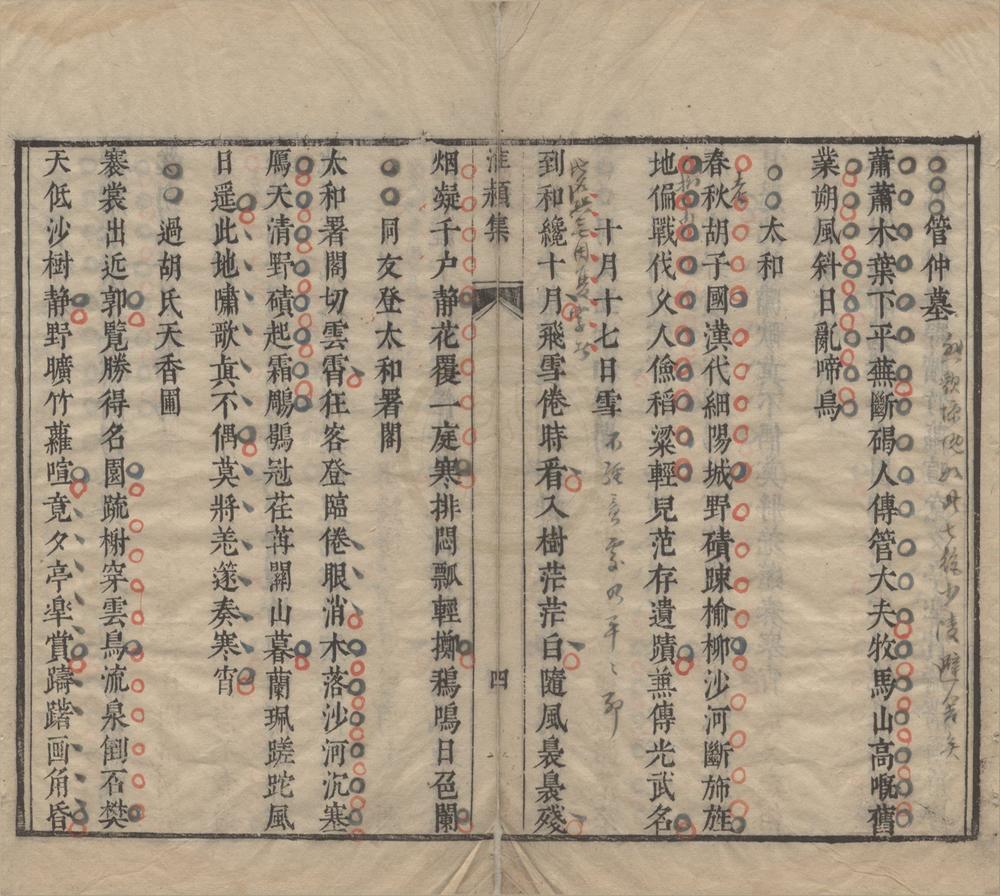 管仲墓
蕭蕭木葉下平蕪斷碣人傳管大夫牧馬山高嘅舊
業朔風斜日亂啼烏
太和
春秋胡子國漢代細陽城野磧疎榆柳沙河斷斾旌
地偏戰伐久人儉稻粱輕見范存遺蹟兼傳光武名
十月十七日雪
到和纔十月飛雪倦時看入樹茫茫白隨風裊裊殘
淮潁集
四
烟凝千户静花覆一庭寒排悶瓢輕擲鵶鳴日色闌
同友登太和署閣
太和署閣切雲霄狂客登臨倦眼消木落沙河沉塞
鴈天清野磧起霜鵰鶡冠荏苒關山暮蘭珮蹉跎風
日遥此地嘯歌真不偶莫將羌篴奏寒宵
過胡氏天香圃
褰裳出近郭覽勝得名園疏榭穿雲鳥流泉倒石樊
天低沙樹静野曠竹蘿喧竟夕亭皐賞躊躇画角昏